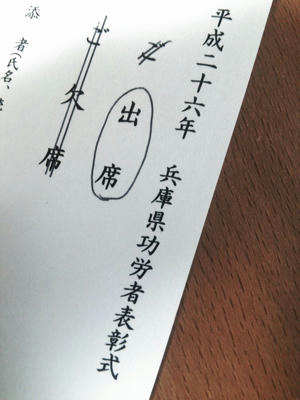 平成二十六年 兵庫県功労者表彰式
ご出席
ご欠席
添 者(氏名、